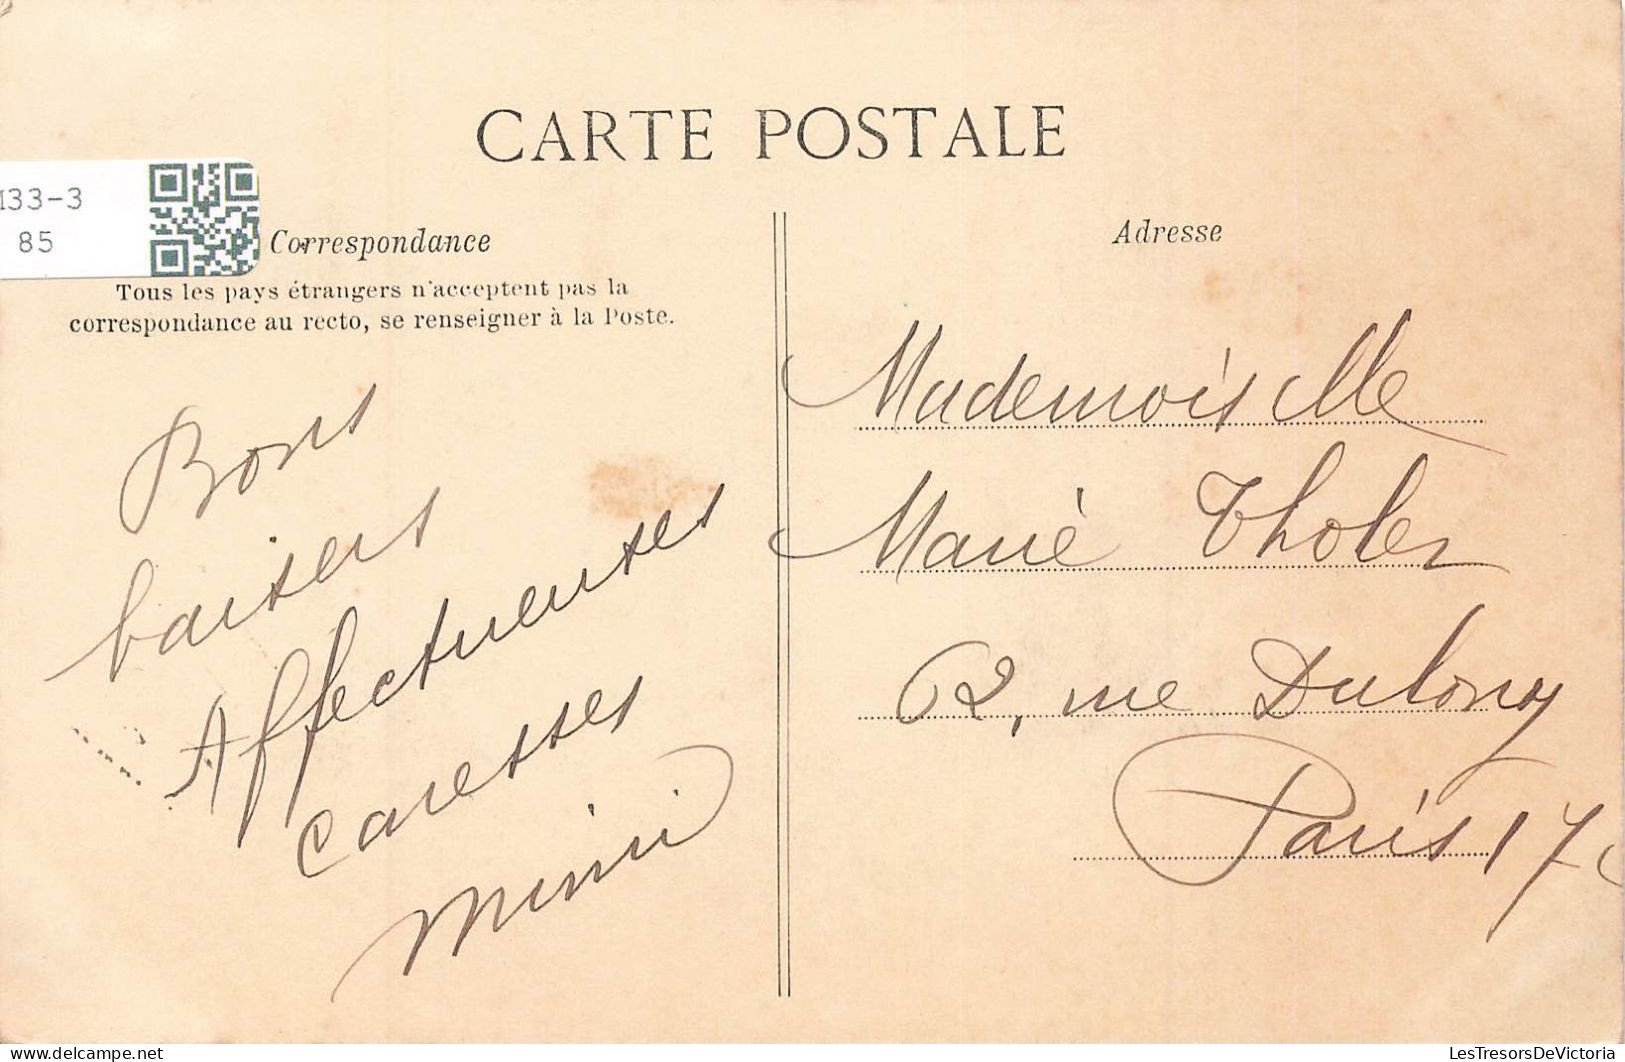 CARTE POSTALE
33-3
85
Correspondance
Tous les pays étrangers n'acceptent pas la
correspondance au recto, se renseigner à la Poste.
Bons
baisers
Affectueuses
caresses
Mimi
Adresse
Mademoiselle
Marie Tholer
62, rue Dulong
Paris 17
LesTresorsDeVictoria